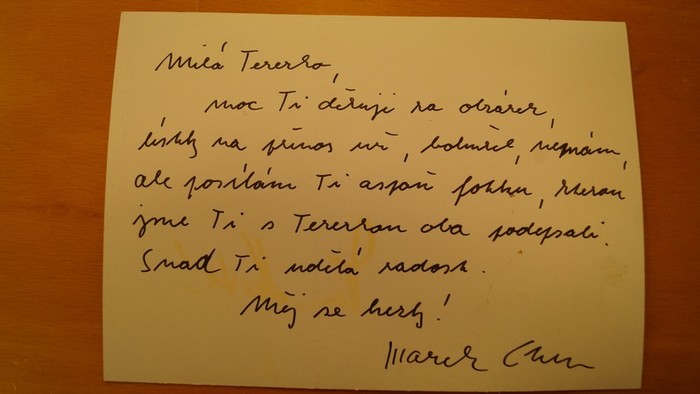 Milá Terezko,
moc Ti děkuji za obrázek,
lístky na přenos už, bohužel, nemám,
ale posílám Ti aspoň fotku, kterou
jsme Ti s Terezkou oba podepsali.
Snad Ti udělá radost.
Měj se hezky!
Marek